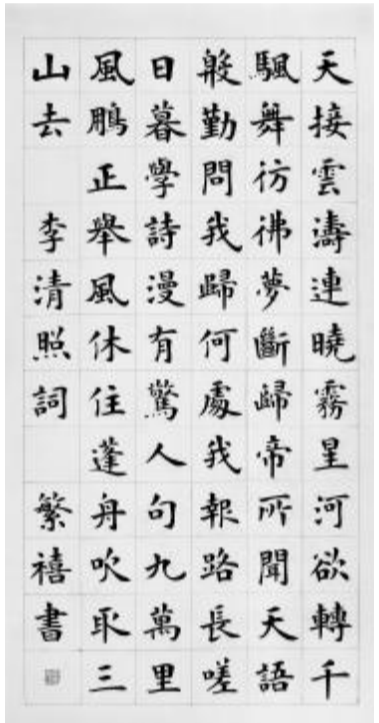 天接雲濤連曉霧星河欲轉千
颿舞彷彿夢斷歸帝所聞天語
殷勤問我歸何處我報路長嗟
日暮學詩漫有驚人句九萬里
風鵬正舉風休住蓬舟吹取三
山去 李清照詞 繁禧書